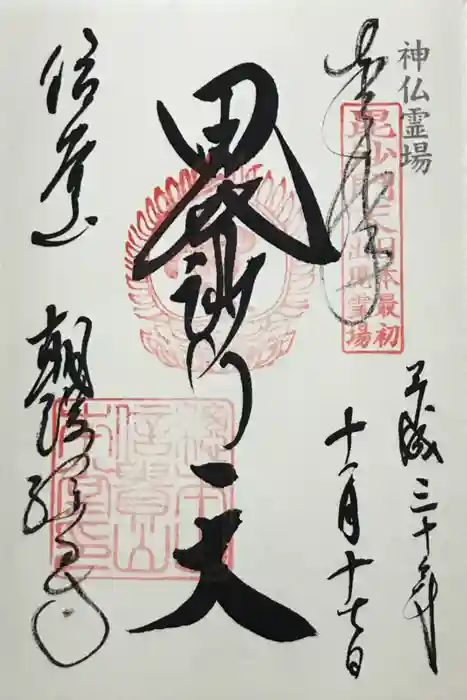 神仏霊場
奉拝
毘沙門天
日本最初
出現霊場
平成三十年
十一月十七日
毘沙門天
信貴山
朝護孫子寺